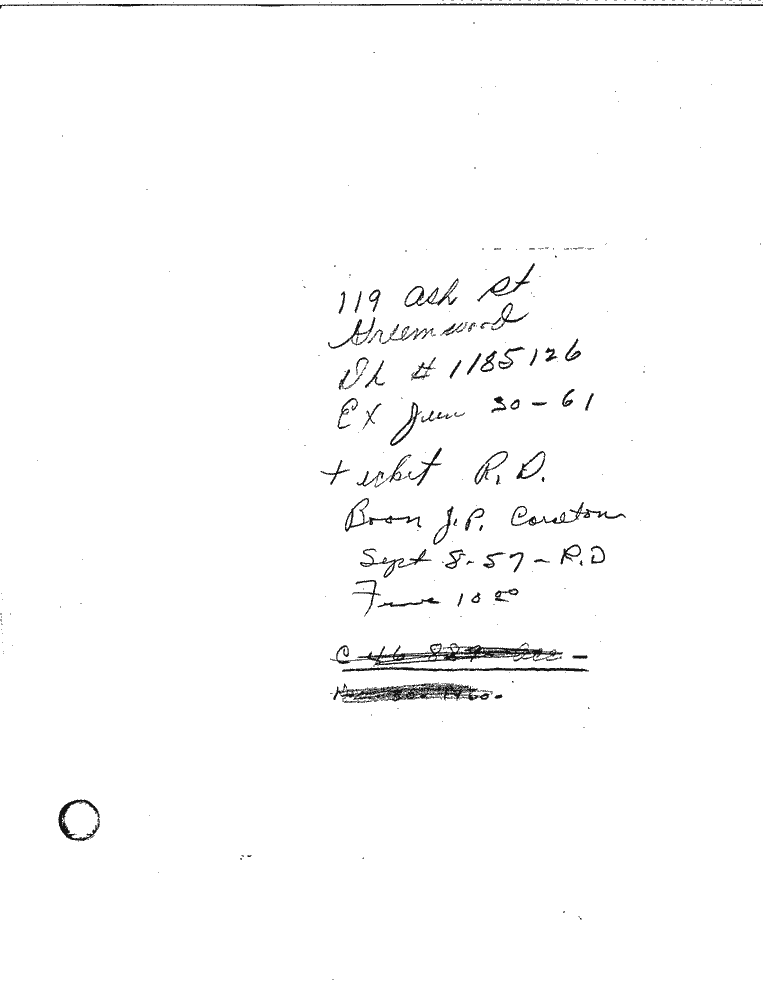 119 Ash St
Greenwood
DL # 1185126
Ex June 30-61
ticket R.D.
Boon J.P. Carolton
Sept 8-57-R.D
Fine 10 00
C 46 889
1960.